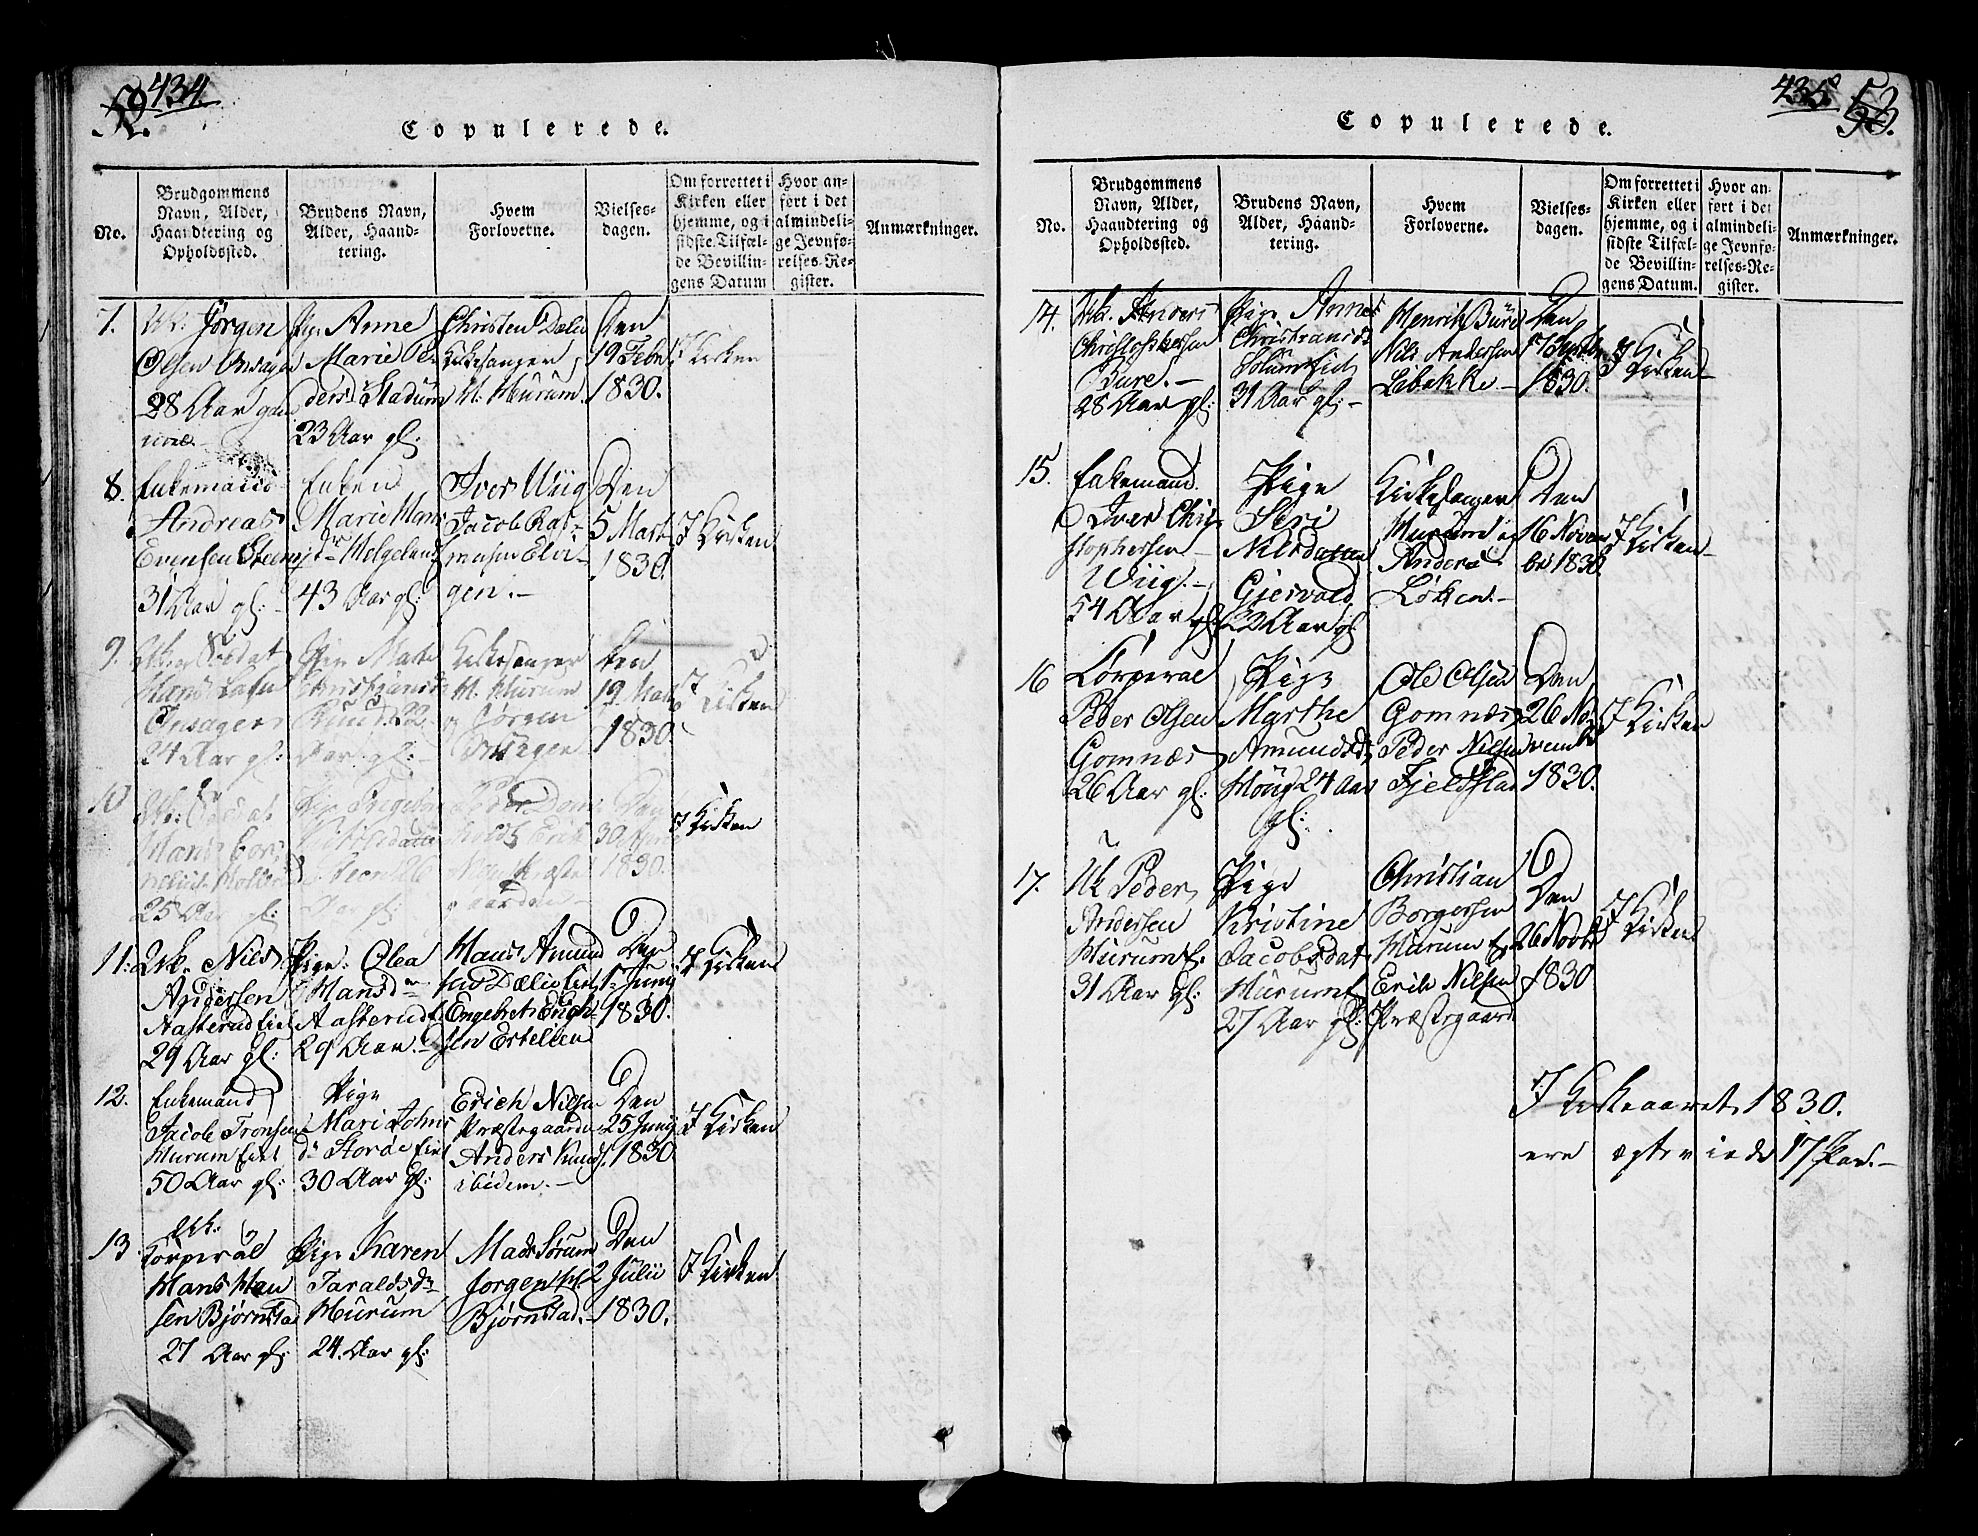 434
52.
Copulerede.
No.
Brudgommens
Navn, Alder,
Haandtering og
Opholdssted.
Brudens Navn,
Alder, Haand-
tering.
Hvem
Forloverne.
Vielses-
dagen.
Om forrettet i
Kirken eller
hjemme, og i
sidste Tilfæl-
de Bevillin-
gens Datum
Hvor an-
ført i det
almindeli-
ge Jevnfø-
relses-Re-
gister.
Anmærkninger.
7.
Jørgen
Olsen Onsager
28 Aar
Pige Anne
Marie Pe
ders Stadum
23 Aar gl:
Christen Dælie
Kirkesanger
H: Hurum
Den
19 Febr
1830.
I Kirken
8.
Enkemand
Andreas
Evensen Steen
31 Aar gl:
Enken
Marie Hans
dr Helgeland
43 Aar gl:
Iver Wiig
Jacob Ras-
mussen Elvi-
gen.-
Den
5 Marts
1830.
I Kirken
9.
Soldat
Hans
Onsager
24 Aar gl:
Pige Mari
Christiansd
Ruud 22
Aar gl:
Kirkesanger
H. Hurum
og Jørgen
Onsager
Den
19 Mart
1830
I Kirken
10
Soldat
Hans
25 Aar gl:
Pige
26
Aar gl:
Peder
Erik
Præste
gaarden
Den
30 April
1830.
I Kirken
11:
Nils
Andersen
Aasterud Eiet
29 Aar gl:
Pige: Olea
Hansdr
Aasterud E.
29 Aar.-
Hans Amund
sen Dælie Eiet
Engebret Erich-
sen Estelien
Den
1 Junij
1830.
I Kirken
12.
Enkemand
Jacob Tronsen
Hurum Eiet
50 Aar gl:
Pige
Mari Johns
dr Storøe Eiet
30 Aar gl:
Erich Nilsen
Præstegaarden
Anders Knuds.
ibidem.-
Den
25 Junij
1830
I Kirken
13.
Korporal
Hans Han
sen Bjørnstad
27 Aar gl:
Pige Karen
Taraldsdr
Hurum
24. Aar gl:
Mads Sørum
Jørgen H.
Bjørnstad.-
Den
2 Julii
1830.
I Kirken
435
53.
Copulerede.
No.
Brudgommens
Navn, Alder,
Haandtering og
Opholdssted.
Brudens Navn,
Alder, Haand-
tering.
Hvem
Forloverne.
Vielses-
dagen.
Om forrettet i
Kirken eller
hjemme, og i
sidste Tilfæl-
de Bevillin-
gens Datum.
Hvor an-
ført i det
almindeli-
ge Jevnfø-
relses-Re-
gister.
Anmærkninger.
14.
Uk. Anders
Christophersen
Bure.-
28 Aar gl:
Pige Anne
Christiansd
31 Aar gl:-
Henrik Bure
Nils Andersen
Libakke-
Den
1830.
I Kirken-
15.
Enkemand
Iver Chri-
stophersen-
Wiig.-
54 Aar gl:
Pige
Siri
Nilsdatter
Gjesvold
22 Aar gl
Kirkesanger
Hurum og
Anders
Løkken.-
Den
16 Novem
br 1830.
I Kirken-
16
Corporal
Peder Olsen
Gomnæs
26 Aar gl:
Pige
Marthe
Amundsd.
Moug 24 Aar
gl:
Ole Olsen
Gomnæs
Peder Nilsen
Fjeldstad
Den
26 No-
vembr
1830.
I Kirken
17.
Uk Peder
Andersen
Hurum E.
31 Aar gl:
Pige
Kristine
Jacobsdat
Hurum E
27 Aar gl:
Christian
Borgersen
Hurum E
Erik Nilsen
Præstegaard
Den
26 Novbr
1830
I Kirken
I Kirkeaaret 1830.
ere ægteviede 17 Par.-